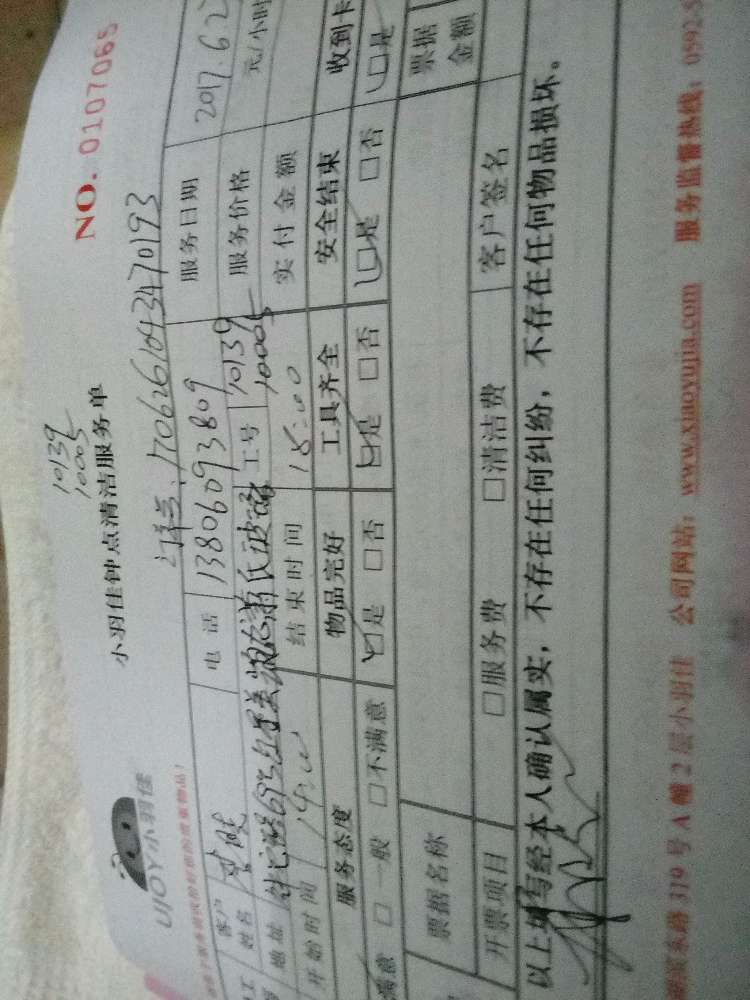 10139
10005
NO. 0107065
UJOY小羽佳
小羽佳钟点清洁服务单
1706261043470193
客户
姓名
电话 13806093809 服务日期 2017.62
地址
工号 10139
10005
服务价格 元/小时
开始时间 14:00 结束时间 18:00 实付金额
服务态度 物品完好 工具齐全 安全结束 收到卡
满意 □一般 □不满意 □是 □否 □是 □否 □是 □否 □是
票据名称 票据
金额
开票项目 □服务费 □清洁费 客户签名
以上填写经本人确认属实，不存在任何纠纷，不存在任何物品损坏。
东路 319 号 A 幢 2 层小羽佳 公司网站：www.xiaoyujia.com 服务监督热线：0592-5